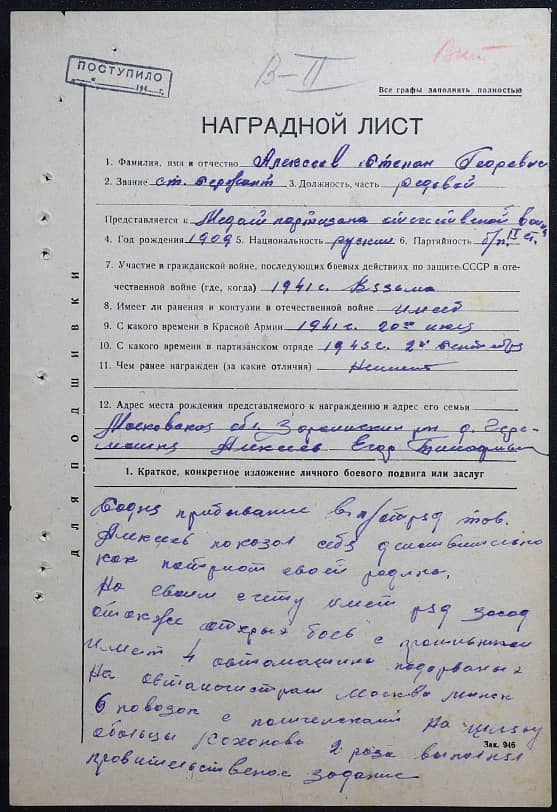 ПОСТУПИЛО
194 г.
В-II
Все графы заполнять полностью
НАГРАДНОЙ ЛИСТ
1. Фамилия, имя и отчество Алексеев Степан
2. Звание ст. сержант 3. Должность, часть редовой
Представляется к Медали партизана отечественной войны II ст.
4. Год рождения 1909 5. Национальность руский 6. Партийность б/п.
7. Участие в гражданской войне, последующих боевых действиях по защите СССР в оте-
чественной войне (где, когда) 1941 г. Вязьма
8. Имеет ли ранения и контузии в отечественной войне имеет
9. С какого времени в Красной Армии 1941 г. 20го
10. С какого времени в партизанском отряде 1943 г. 2го сентября
11. Чем ранее награжден (за какие отличия)
12. Адрес места рождения представляемого к награждению и адрес его семьи
Московская обл. рн д.
Алексеев Егор Тимофеевич
1. Краткое, конкретное изложение личного боевого подвига или заслуг
прибывание в п/отряд тов.
Алексеев показал себя
как патриот своей родины.
На своем счету имеет ряд засад
открых боев с
имеет 4 автомашины подорваных
на автомагистрали Москва Минск
6 повозок с полицейскими на
2 раза выполнял
задание
ДЛЯ ПОДШИВКИ
Зак. 946